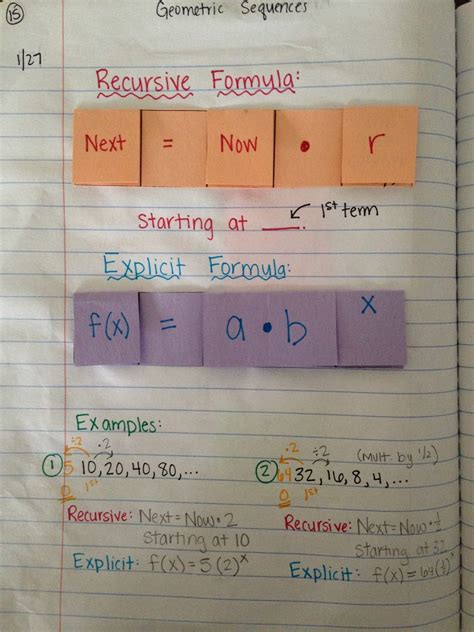 15
Geometric Sequences
1/27
Recursive Formula:
Next = Now • r
Starting at ____. 1st term
Explicit Formula:
f(x) = a • b x
Examples:
÷2 ·2
1 5 10, 20, 40, 80, ...
0 1st
Recursive: Next = Now · 2
Starting at 10
Explicit: f(x) = 5(2)^x
·2 ÷2 (Mult. by 1/2)
2 64 32, 16, 8, 4, ...
0 1st
Recursive: Next = Now · 1/2
Starting at 32
Explicit: f(x) = 64(1/2)^x